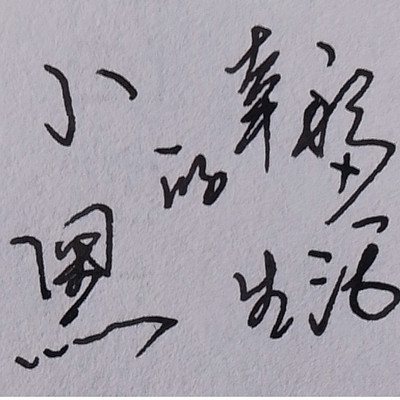 小黑
的
幸福
生活